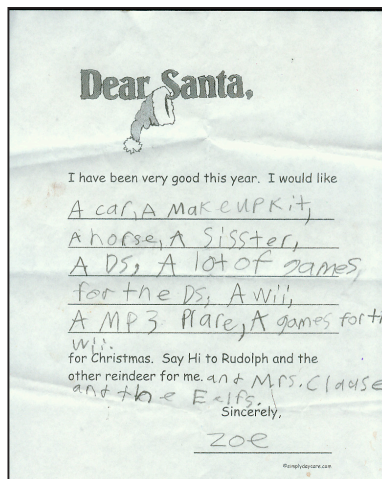 Dear Santa,
I have been very good this year. I would like
A car, A Makeup Kit,
A horse, A Sisster,
A Ds, A lot of games,
for the Ds, A wii,
A MP3 Plare, A games for th
wii.
for Christmas. Say Hi to Rudolph and the
other reindeer for me. and Mrs. Clause
and the Eelfs.
Sincerely,
zoe
©simplydaycare.com